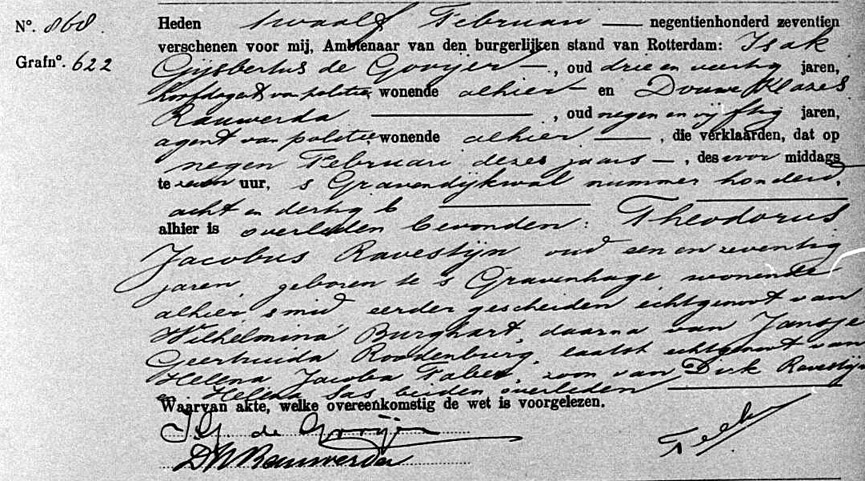 Nº. 868.
Grafnº. 622
Heden twaalf Februari — negentienhonderd zeventien
verschenen voor mij, Ambtenaar van den burgerlijken stand van Rotterdam: Isak
Gijsbertus de Gooijer —, oud drie en veertig jaren,
hoofdagent van politie, wonende alhier — en Douwe Klazes
Rauwerda —, oud negen en vijftig jaren,
agent van politie, wonende alhier —, die verklaarden, dat op
negen Februari dezes jaars —, des voor middags
te zeven uur, s Gravendijkwal nummer honderd
acht en dertig b
alhier is overleden bevonden: Theodorus
Jacobus Ravestijn oud een en zeventig
jaren, geboren te s Gravenhage, wonende
alhier smid eerder gescheiden echtgenoot van
Wilhelmina Burghart, daarna van Jansje
Geertruida Roodenburg, laatst echtgenoot van
Helena Jacoba Faber, zoon van Dirk Ravestijn
en Helena Bas beiden overleden —
Waarvan akte, welke overeenkomstig de wet is voorgelezen.
I.G. de Gooijer
DK Rauwerda